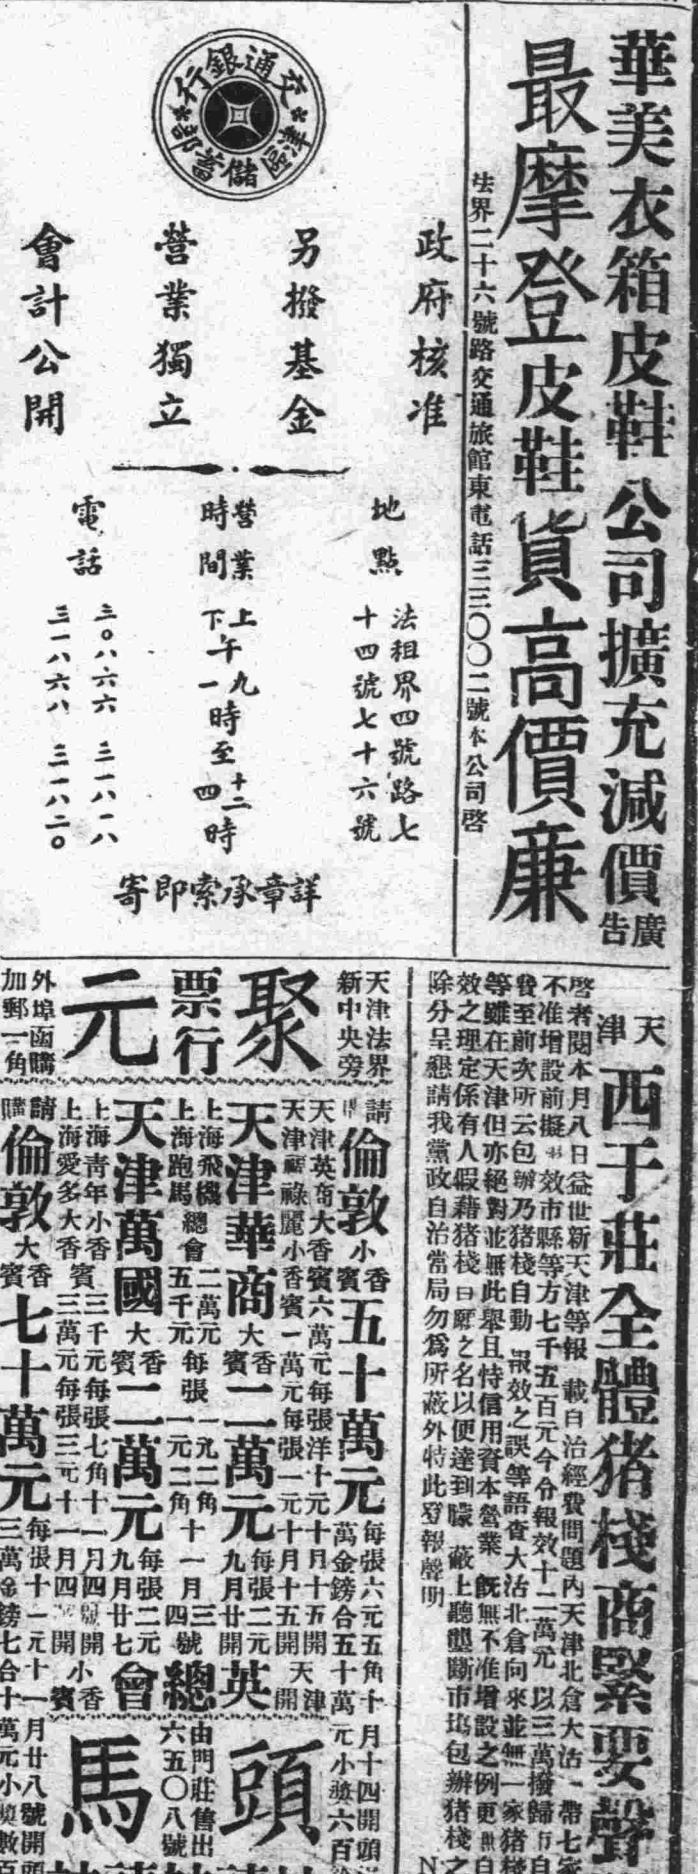 華美衣箱皮鞋公司擴充減價廣告
最摩登皮鞋貨高價廉
法界二十六號路交通旅館東電話三三〇〇二號本公司啓
交通銀行
津區儲蓄部
政府核准
另撥基金
營業獨立
會計公開
地點
法租界四號路七
十四號七十六號
營業時間
上午九時至十二時
下午一時至四時
電話
三〇八六六 三一八一八
三一八六八 三一八二〇
詳章承索即寄
天津西于莊全體猪棧商緊要聲
啓者閱本月八日益世新天津等報載自治經費問題內天津北倉大沽一帶七
不准增設前擬 效市縣等方七千五百元今分報效十二萬元以三萬撥歸行自
發至前次所云包辦乃猪棧自動報效之誤等語查大沽北倉向來並無一家猪棧
等雖在天津但亦絕對並無此舉且恃信用資本營業既無不准增設之例更無自
效之理定係有人假藉猪棧自願之名以便達到矇蔽上聽壟斷市塲包辦猪棧之
除分呈懇請我黨政自治當局勿爲所蔽外特此登報聲明
天津法界
新中央旁
聚元
票行
外埠函購
加郵一角
請
倫敦小香賓五十萬元每張六元五角十月十四開頭
萬金鎊合五十萬元小獎六百
天津英商大香賓六萬元每張洋十元十月十五開天津
天津福祿麗小香賓一萬元每張一元十月十五開
天津華商大香賓二萬元每張二元九月廿開英
上海飛機 二萬元 一元二角 三
上海跑馬總會五千元每張一元二角十一月四號總
天津萬國大香賓二萬元每張二元九月廿七會
上海靑年小香賓三千元每張七角十一月四號開小香
上海愛多大香賓三萬元每張三元十一月四 開賓
請購
倫敦大香賓七十萬元每張十一元十一月廿八號開頭
三萬金鎊七合十萬元小獎數百
頭
由門莊售出
六五〇八號
馬